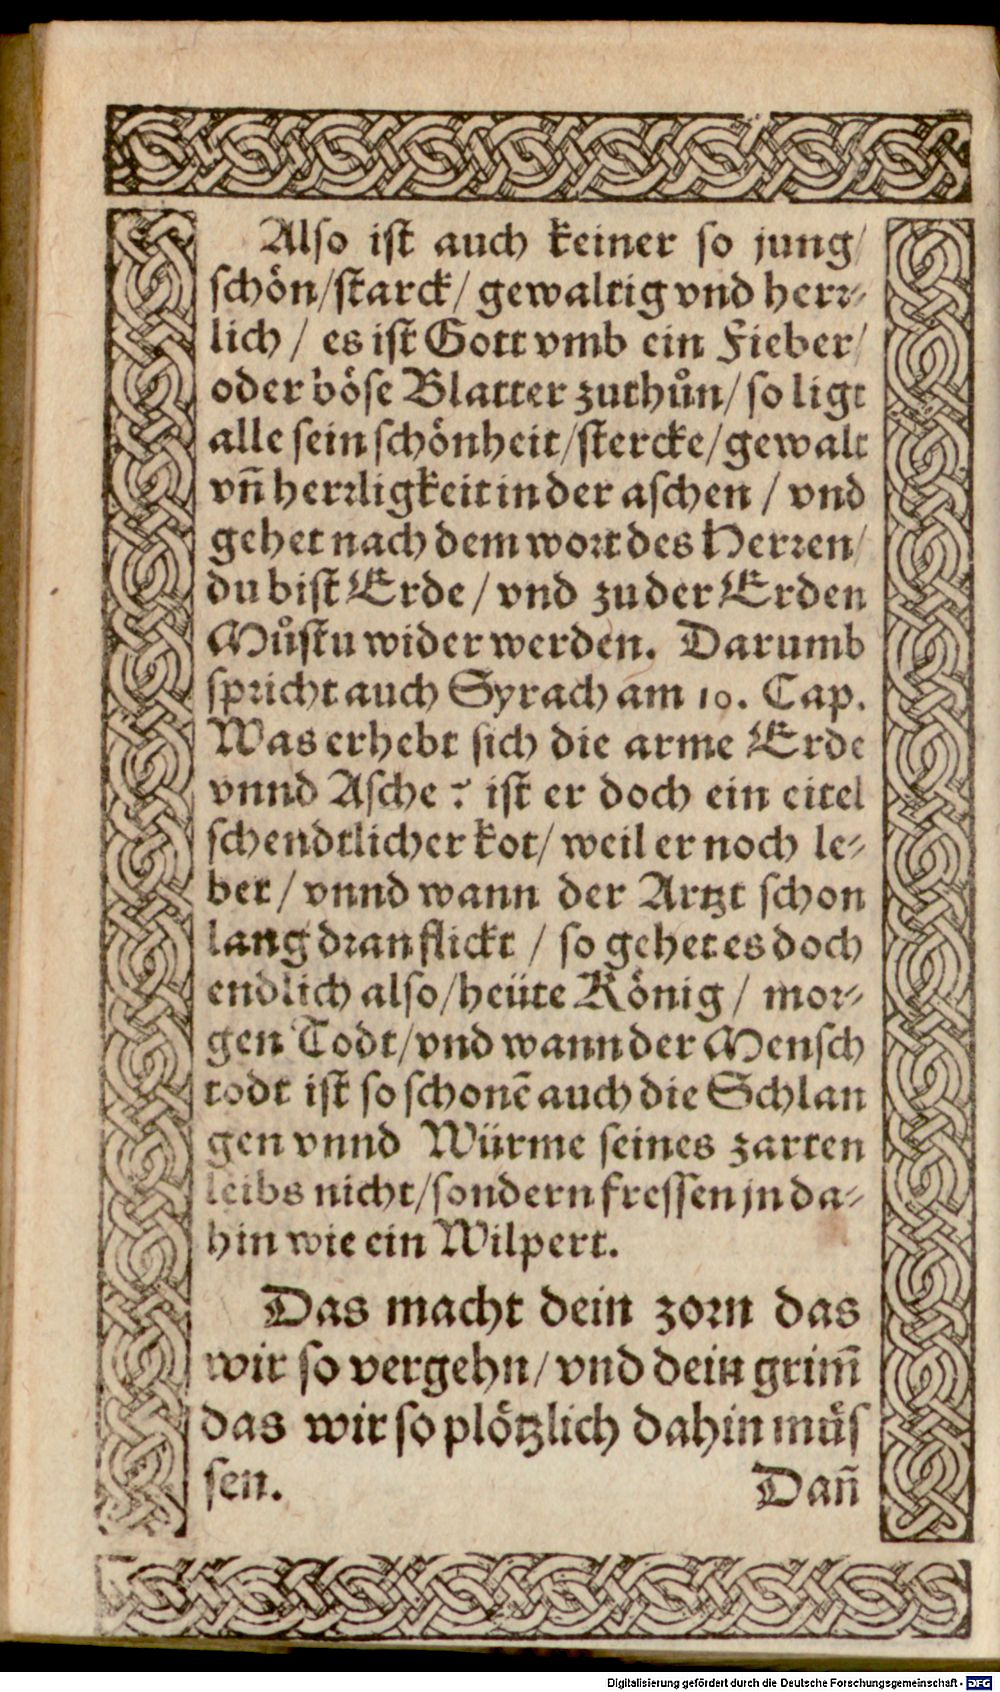 Also ist auch keiner so jung/
schön/starck/ gewaltig vnd herr-
lich / es ist Gott vmb ein Fieber/
oder böse Blatter zuthůn/ so ligt
alle sein schönheit/stercke/gewalt
vn̄ herrligkeit in der aschen / vnd
gehet nach dem wort des Herren/
du bist Erde / vnd zu der Erden
Můstu wider werden. Darumb
spricht auch Syrach am 10. Cap.
Was erhebt sich die arme Erde
vnnd Asche? ist er doch ein eitel
schendtlicher kot/ weil er noch le-
bet/ vnnd wann der Artzt schon
lang dran flickt / so gehet es doch
endlich also/heüte König / mor-
gen Todt/vnd wann der Mensch
todt ist so schonē auch die Schlan
gen vnnd Würme seines zarten
leibs nicht/sondern fressen jn da-
hin wie ein Wilpert.
Das macht dein zorn das
wir so vergehn/vnd dein grim̄
das wir so plötzlich dahin müs
sen. Dan̄
Digitalisierung gefördert durch die Deutsche Forschungsgemeinschaft - DFG